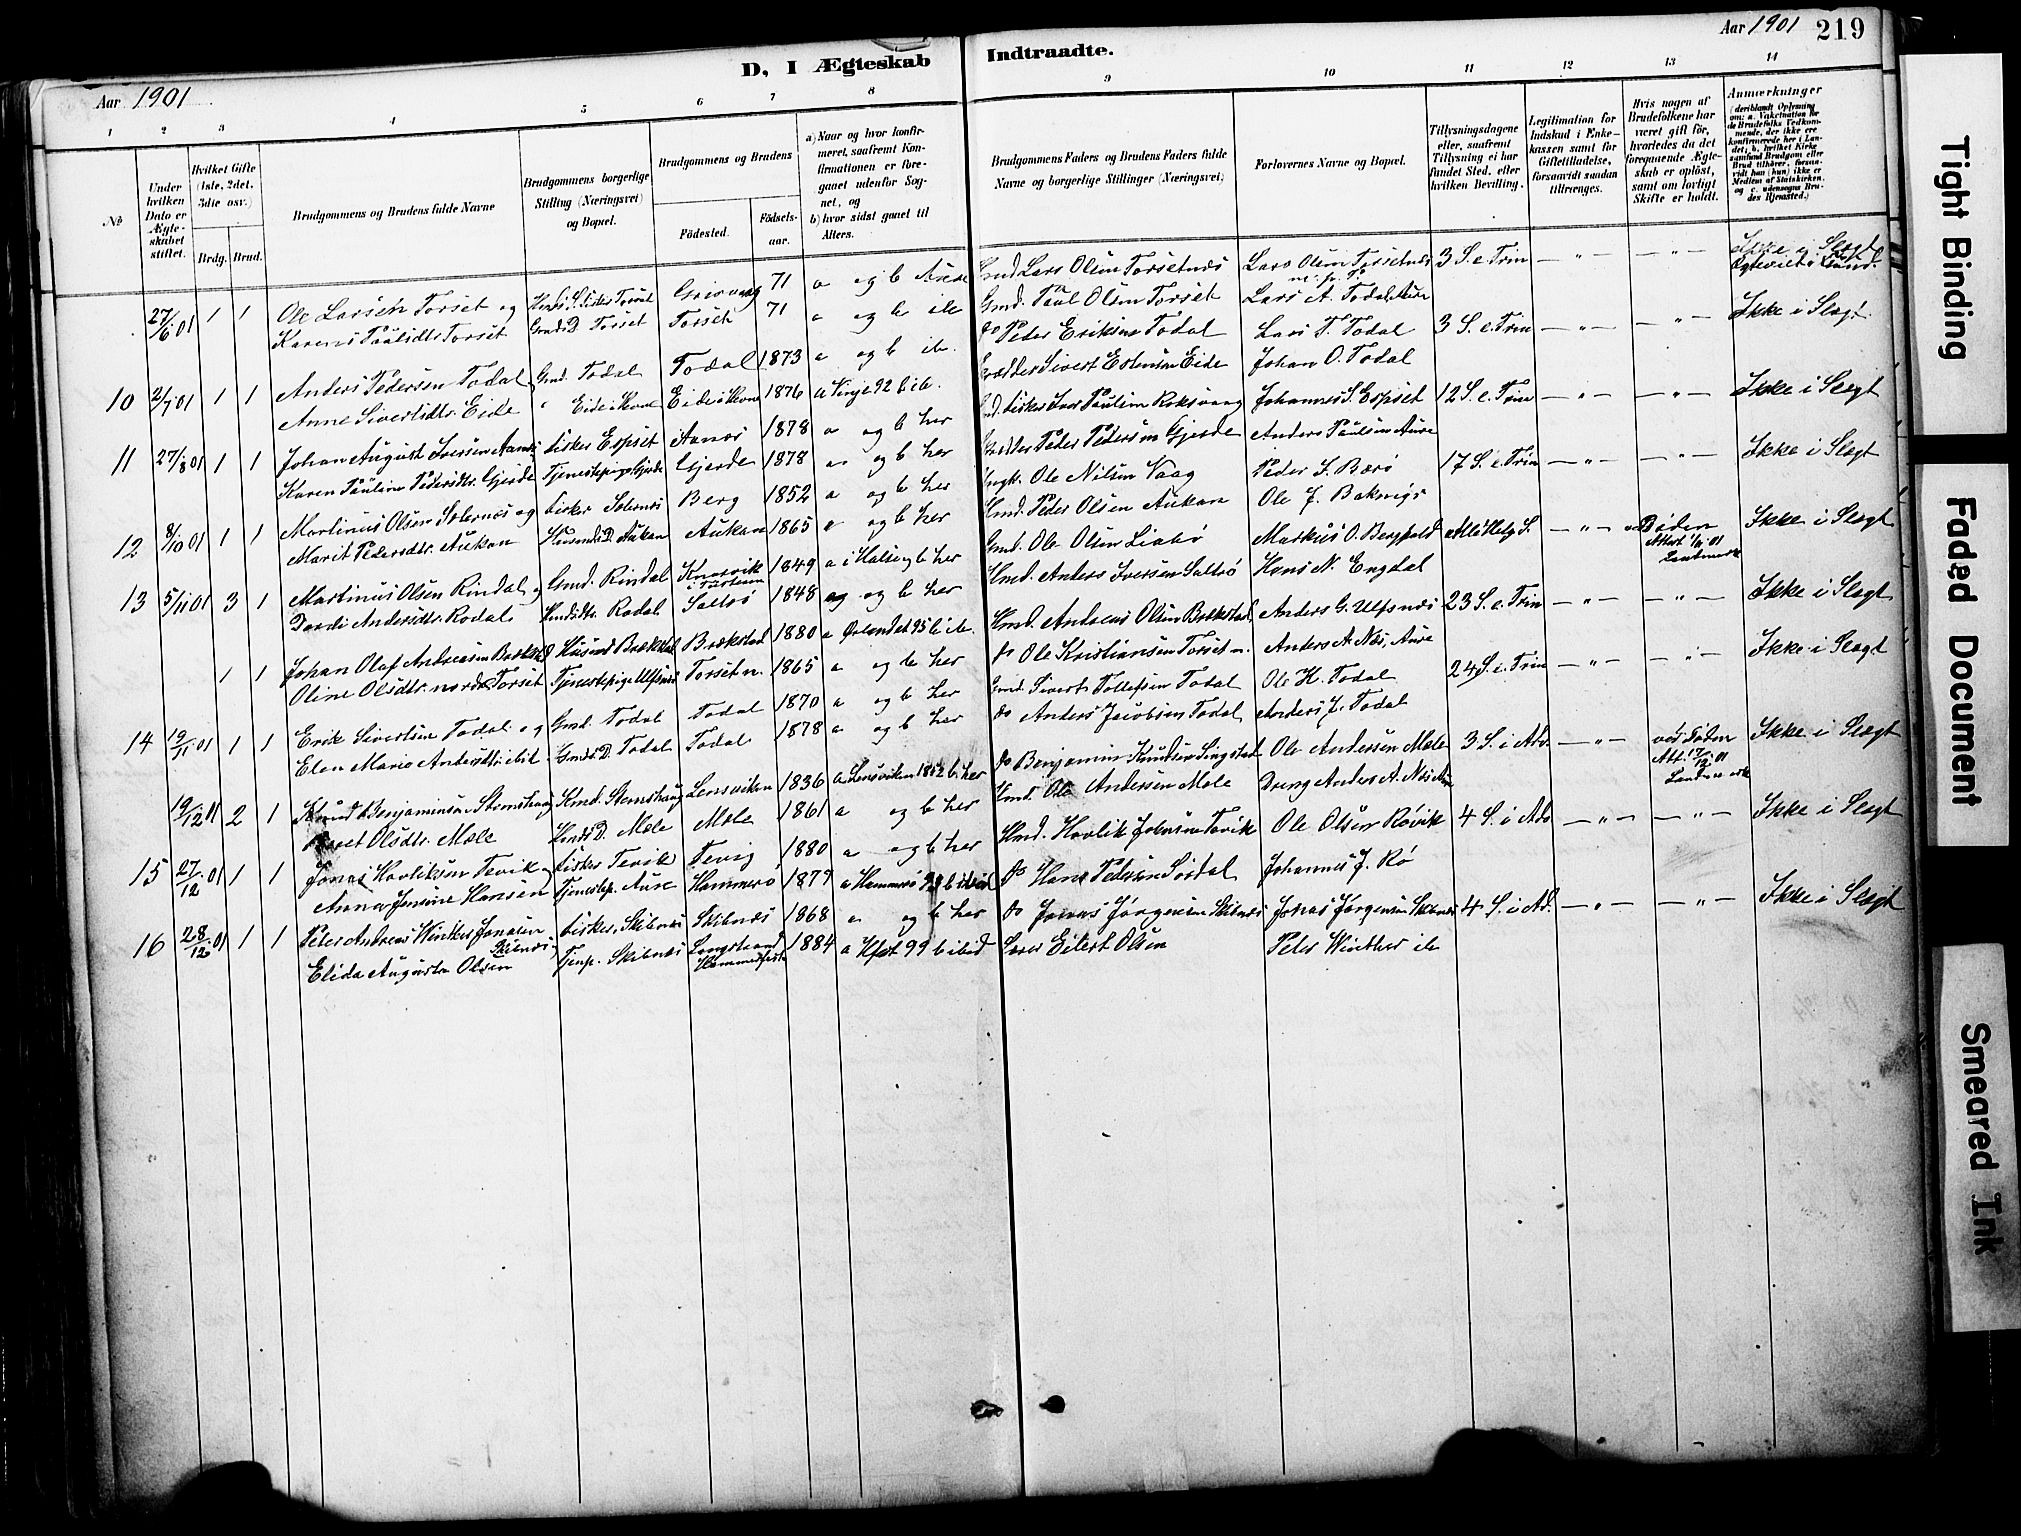 Aar 1901
D, I Ægteskab Indtraadte.
Aar 1901 219
1 2 3 4 5 6 7 8 9 10 11 12 13 14
No
Under hvilken Dato er Ægteskabet stiftet.
Hvilket Gifte (1ste, 2det, 3die osv.)
Brdg. Brud.
Brudgommens og Brudens fulde Navne
Brudgommens borgerlige Stilling (Næringsvei) og Bopæl.
Brudgommens og Brudens
Födested.
Födsels-aar.
a) Naar og hvor konfirmeret, saafremt Konfirmationen er foregaaet udenfor Sognet, og
b) hvor sidst gaaet til Alters.
Brudgommens Faders og Brudens Faders fulde Navne og borgerlige Stillinger (Næringsvei)
Forlovernes Navne og Bopæl.
Tillysningsdagene eller, saafremt Tillysning ei har fundet Sted, efter hvilken Bevilling.
Legitimation for Indskud i Enkekassen samt for Giftetilladelse, forsaavidt saadan tiltrænges.
Hvis nogen af Brudefolkene har været gift før, hvorledes da det foregaaende Ægteskab er opløst, samt om lovligt Skifte er holdt.
Anmærkninger (deriblandt Oplysning om: a. Vakcination for de Brudefolks Vedkommende, der ikke ere konfirmerede her i Landet; b. hvilket Kirkesamfund Brudgom eller Brud tilhører, forsaavidt han (hun) ikke er Medlem af Statskirken, og c. udensogns Brudes Hjemsted.)
27/6 01 1 1 Ole Larsen Torset og 71 a og b Aure Gmd Lars Olsen Torsetnes Lars Olsen Torsetnes 3 S. e. Trin — " — — " — Ikke i Slægt
Karen Paulsdtr Torset Gmds D. Torset Torset 71 a og b ib Gmd. Paul Olsen Torset Lars A. Todal Aure
10 2/7 01 1 1 Anders Pedersen Todal Gmd. Todal Todal 1873 a og b ib. do Peder Eriksen Todal Lars T. Todal 3 S. e. Trin — " — — " — Ikke i Slægt
Anne Sivertsdtr. Eide " Eide i Hevne Eide i Hevne 1876 a Vinje 92 b ib. Sivert Estensen Eide Johan O. Todal
11 27/8 01 1 1 Johan August Iversen Aanes Fisker Espset Aanes 1878 a og b her Iver Paulsen Roksvaag Johannes S. Espset 12 S. e. Trin — " — — " — Ikke i Slægt
Karen Pauline Pedersdtr. Gjerde Tjenestepige Gjerde Gjerde 1878 a og b her Peder Pedersen Gjerde Anders Paulsen Aure
12 8/10 01 1 1 Martinus Olsen Solernes og Fisker Solernes Berg 1852 a og b her Ole Nilsen Vaag Peder S. Bærø 17 S. e. Trin — " — — " — Ikke i Slægt
Marit Pedersdtr. Aukan Husmds D. Aukan Aukan 1865 a og b her Hmd. Peder Olsen Aukan Ole J. Bakvig
13 5/11 01 3 1 Martinus Olsen Rindal og Gmd. Rindal Knarvik Tustern 1849 a i Halse og b her Gmd. Ole Olsen Liabø Markus O. Berghold Alle Helg. S. — " — ved Døden Attest 1/11 01 Lensmand Ikke i Slægt
Dordi Andersdtr. Rodal Hmdsdtr. Rodal Saltrø 1848 a og b her Hmd. Anders Iversen Saltrø Hans N. Engdal
1 1 Johan Olaf Andreassen Brækstad Husmd Brækstad Brækstad 1880 a Ørlandet 95 b ib. Hmd. Andreas Olsen Brækstad Anders G. Ulfsnes 23 S. e. Trin — " — — " — Ikke i Slægt
Oline Olsdtr. nordre Torset Tjenestepige Ulfsnes Torset n. 1865 a og b her do Ole Kristiansen Torset n. Anders A. Næs, Aure
14 19/11 01 1 1 Erik Sivertsen Todal og Gmd. Todal Todal 1870 a og b her Gmd. Sivert Tollefsen Todal Ole H. Todal 24 S. e. Trin — " — — " — Ikke i Slægt
Elen Marie Andersdtr. ibid Gmds D. Todal Todal 1878 a og b her do Anders Jacobsen Todal Anders J. Todal
19/12 01 2 1 Knud Benjaminsen Stemshaug Kmd. Stemshaug Lensviken 1836 a Lensviken 1852 b her do Benjamin Knudsen Singstad Ole Andersen Mæle 3 S. i Adv. — " — ved Døden Att. 17/12 01 Ikke i Slægt
Beret Olsdtr. Mæle Hmds D. Mæle Mæle 1861 a og b her Hmd. Ole Andersen Mæle Dreng Anders A. Næs Aure
15 27/12 01 1 1 Jonas Havliksen Tevik Fisker Tevik Tevig 1880 a og b her Hmd. Havlik Johnsen Tevik Ole Olsen Røvik 4 S. i Adv — " — — " — Ikke i Slægt
Anna Jensine Hansen Tjenestep. Aure Hammerø 1879 a Hammerø 93 b ibid do Hans Pedersen Sørdal Johannes J. Rø
16 28/12 01 1 1 Peter Andreas Winther Jonasen Skibnes Fisker, Skibnes Skibnes 1868 a og b her do Jonas Jørgensen Skibnes Jonas Jørgensen Skibnes 4 S. i Ad. — " — — " — Ikke i Slægt
Elida Augusta Olsen Tjenp. Skibnes Langstrand Hammerfest 1884 a Hfest 99 b ibid Eilert Olsen Peter Winther ib
Tight Binding
Faded Document
Smeared Ink